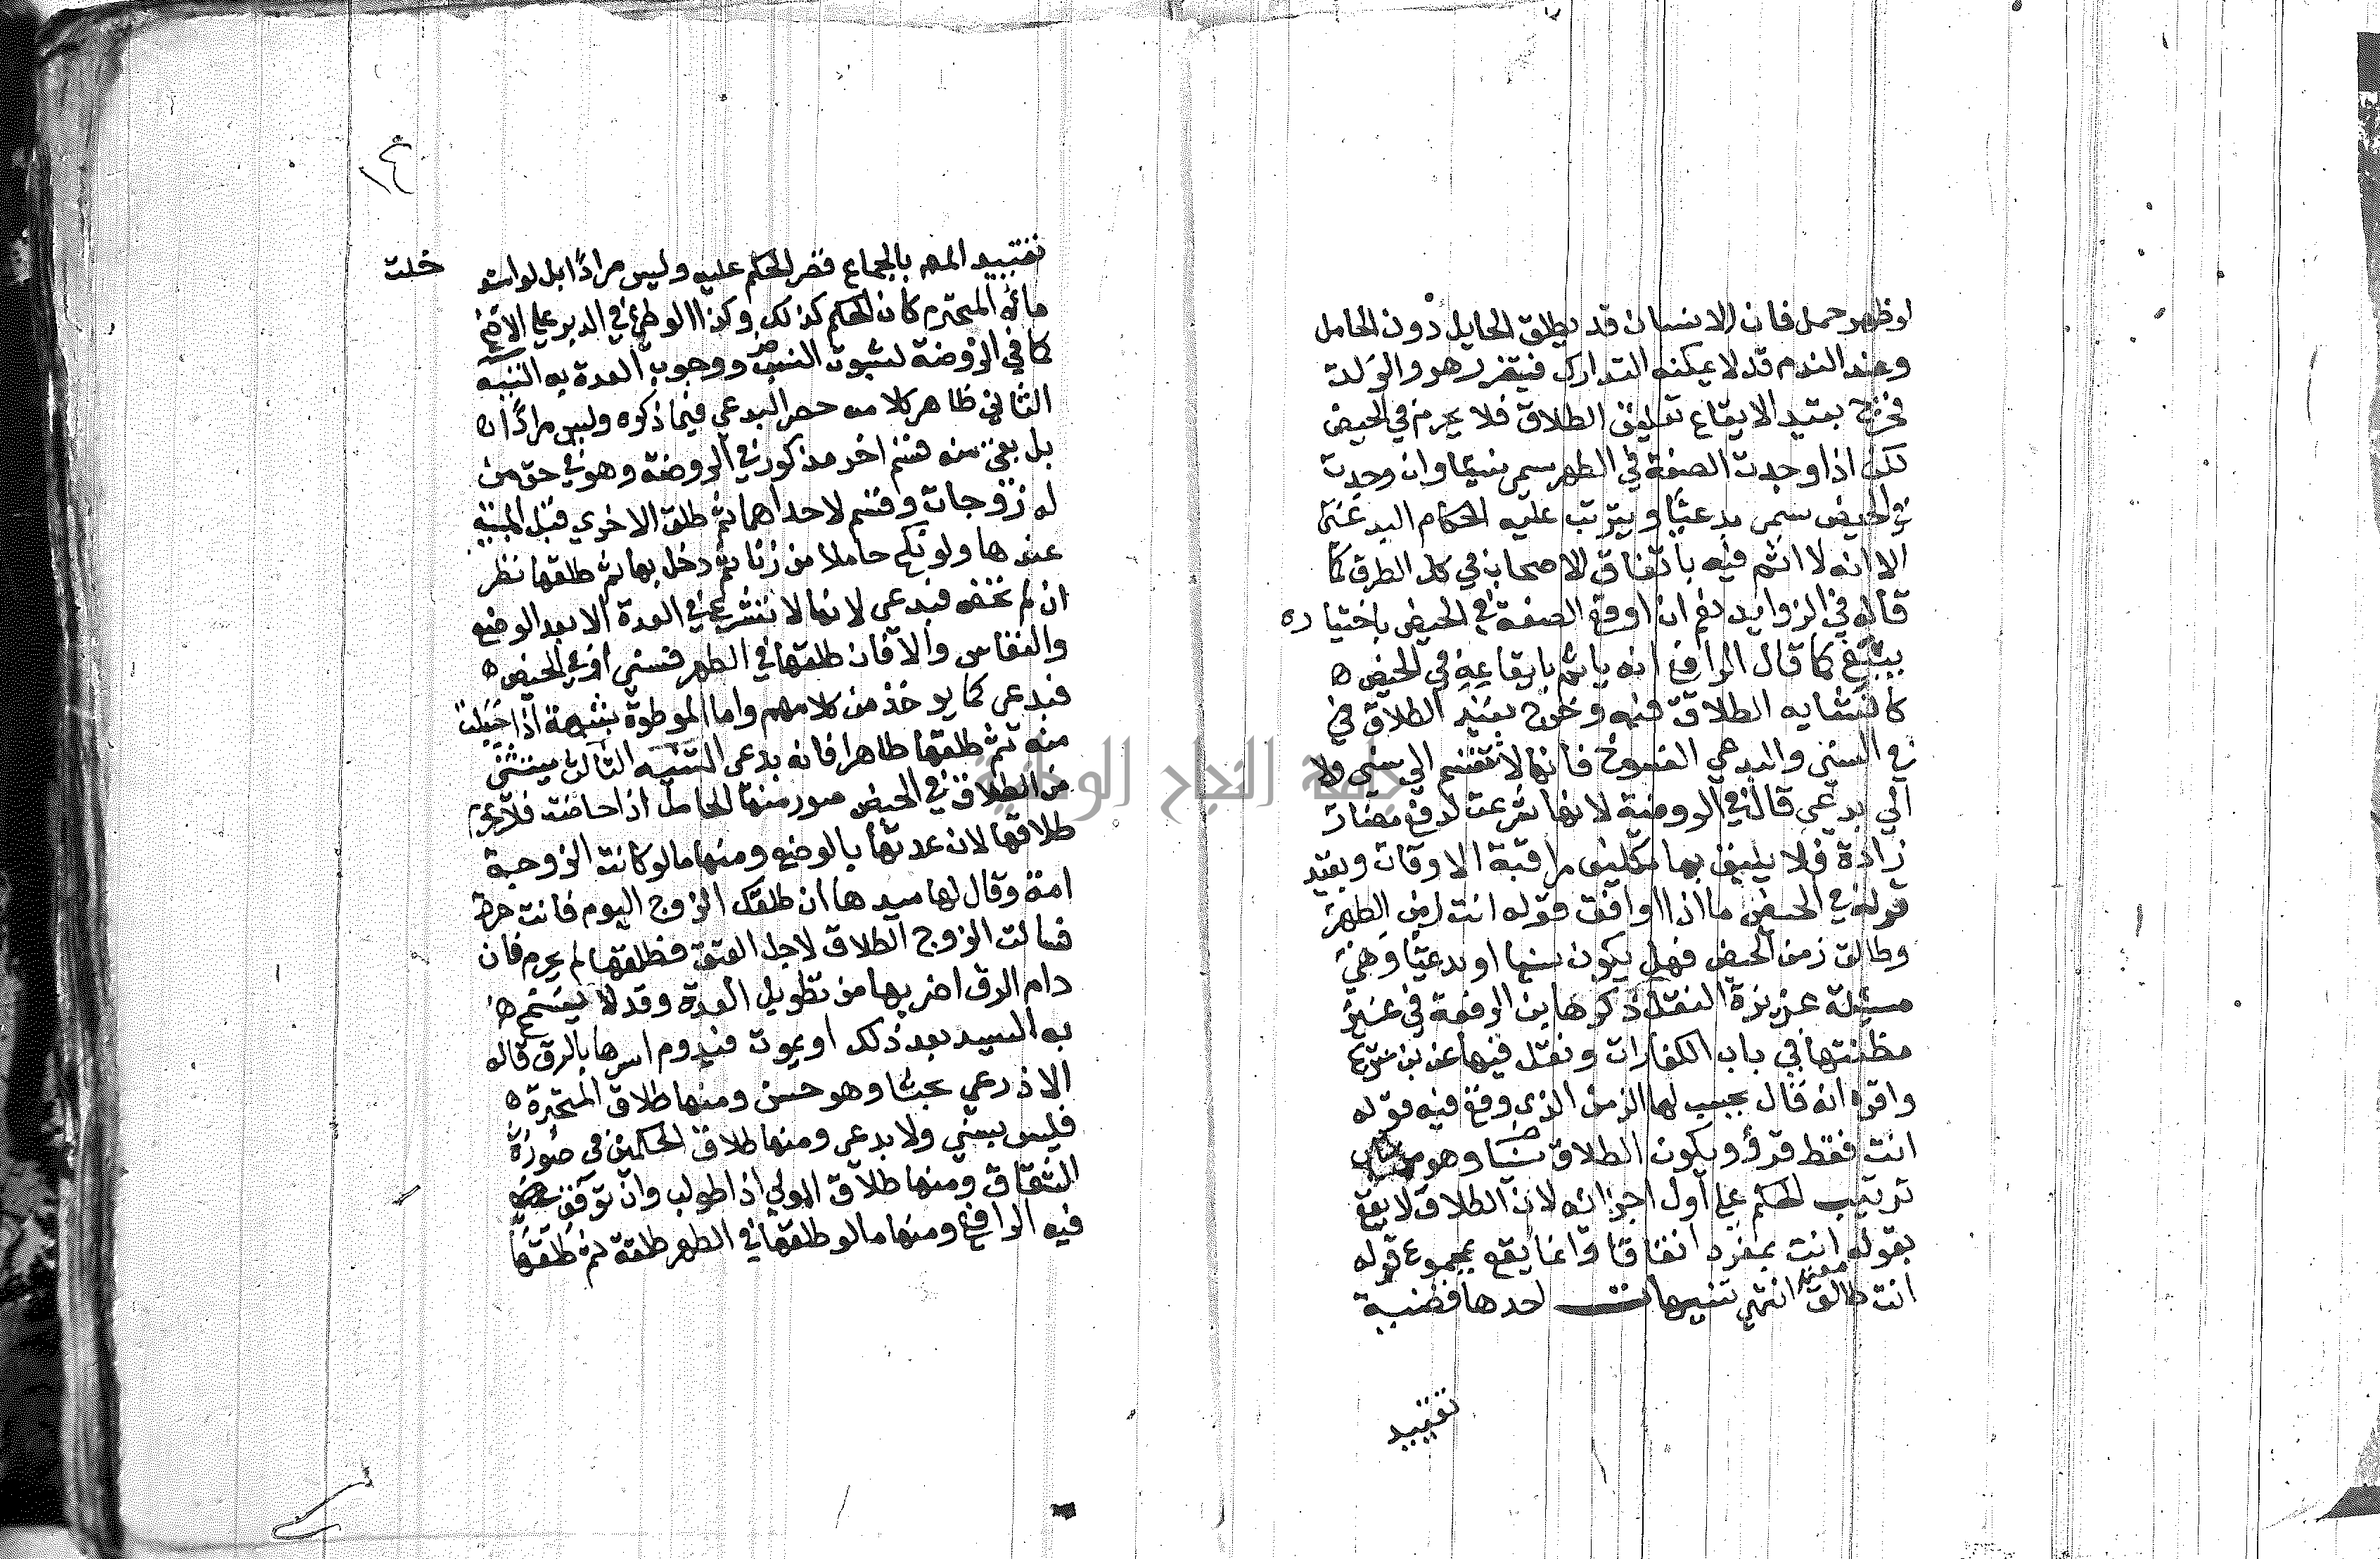 او ظهر حمل فان الانسان قد يطلق الحايل دون الحامل
وعند الندم قد لا يمكنه التدارك فيتضرر هو والولد
فخرج بقيد الايقاع تعليق الطلاق فلا يحرم في الحيض
لكن اذا وجدت الصفة في الطهر سمي سنيا وان وجدت
في الحيض سمي بدعيا ويترتب عليه احكام البدعي
الا انه لا اثم فيه باتفاق الاصحاب في كل الطرق كما
قاله في الزوايد نعم ان اوقع الصفة في الحيض باختياره
ينبغي كما قال الرافعي انه ياثم بايقاعه في الحيض ه
كانشايه الطلاق فيه وخرج بقيد الطلاق في
السني والبدعي الفسوخ فانها لا تنقسم الي سني ولا
الي بدعي قال في الروضة لانها شرعت لدفع مضار
زادة فلا يليق بها تكليف مراقبة الاوقات وبقيد
قوله في الحيض ما اذا وافق قوله انت زمن الطهر
وطالق زمن الحيض فهل يكون سنيا او بدعيا وهي
مسئلة عزيزة النقل ذكرها ابن الرفعة في غير
مظنتها في باب الكفارات ونقل فيها عن بن سريج
واقره انه قال يحسب لها الزمن الذي وقع فيه قوله
انت فقط قرؤ ويكون الطلاق سنيا وهو من باب
ترتيب الحكم علي اول اجزائه لان الطلاق لا يقع
بقوله انت بمفرده اتفاقا وانما يقع بمجموع قوله
انت طالق انتهي تنبيهات احدها قضية
تقييد
١٤
تقييد المص بالجماع قصر الحكم عليه وليس مرادا بل لو است
خلت
مائه المحترم كان الحكم كذلك وكذا الوطئ في الدبر علي الاصح
كما في الروضة لثبوت النسب ووجوب العدة به التنبيه
الثاني ظاهر كلامه حصر البدعي فيما ذكره وليس مرادا ه
بل بقي منه قسم اخر مذكور في الروضة وهو في حق من
له زوجات وقسم لاحداهما ثم طلق الاخري قبل المبيت
عندها ولو نكح حاملا من زنا ثم دخل بها ثم طلقها نظر
ان لم تحض فبدعي لانها لا تشرع في العدة الا بعد الوضع
والنفاس والا فان طلقها في الطهر فسني او في الحيض ه
فبدعي كما يوخذ من كلامهم واما الموطوة بشبهة اذا حبلت
منه ثم طلقها طاهرا فانه بدعي التنبيه الثالث يستثني
من الطلاق في الحيض صور منها الحامل اذا حاضت فلا يحرم
طلاقها لان عدتها بالوضع ومنها ما لو كانت الزوجة
امة وقال لها سيدها ان طلقك الزوج اليوم فانت حرة
فسالت الزوج الطلاق لاجل العتق فطلقها لم يحرم فان
دام الرق اضر بها من تطويل العدة وقد لا يسمح ه
به السيد بعد ذلك او يموت فيدوم اسرها بالرق قاله
الاذرعي بحثا وهو حسن ومنها طلاق المتحيرة ه
فليس بسني ولا بدعي ومنها طلاق الحكمين في صورة
الشقاق ومنها طلاق المولي اذا طولب وان توقف
فيه الرافعي ومنها ما لو طلقها في الطهر طلقة ثم طلقها